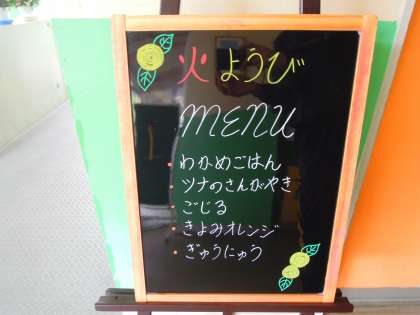 火ようび
MENU
・わかめごはん
・ツナのさんがやき
・ごじる
・きよみオレンジ
・ぎゅうにゅう